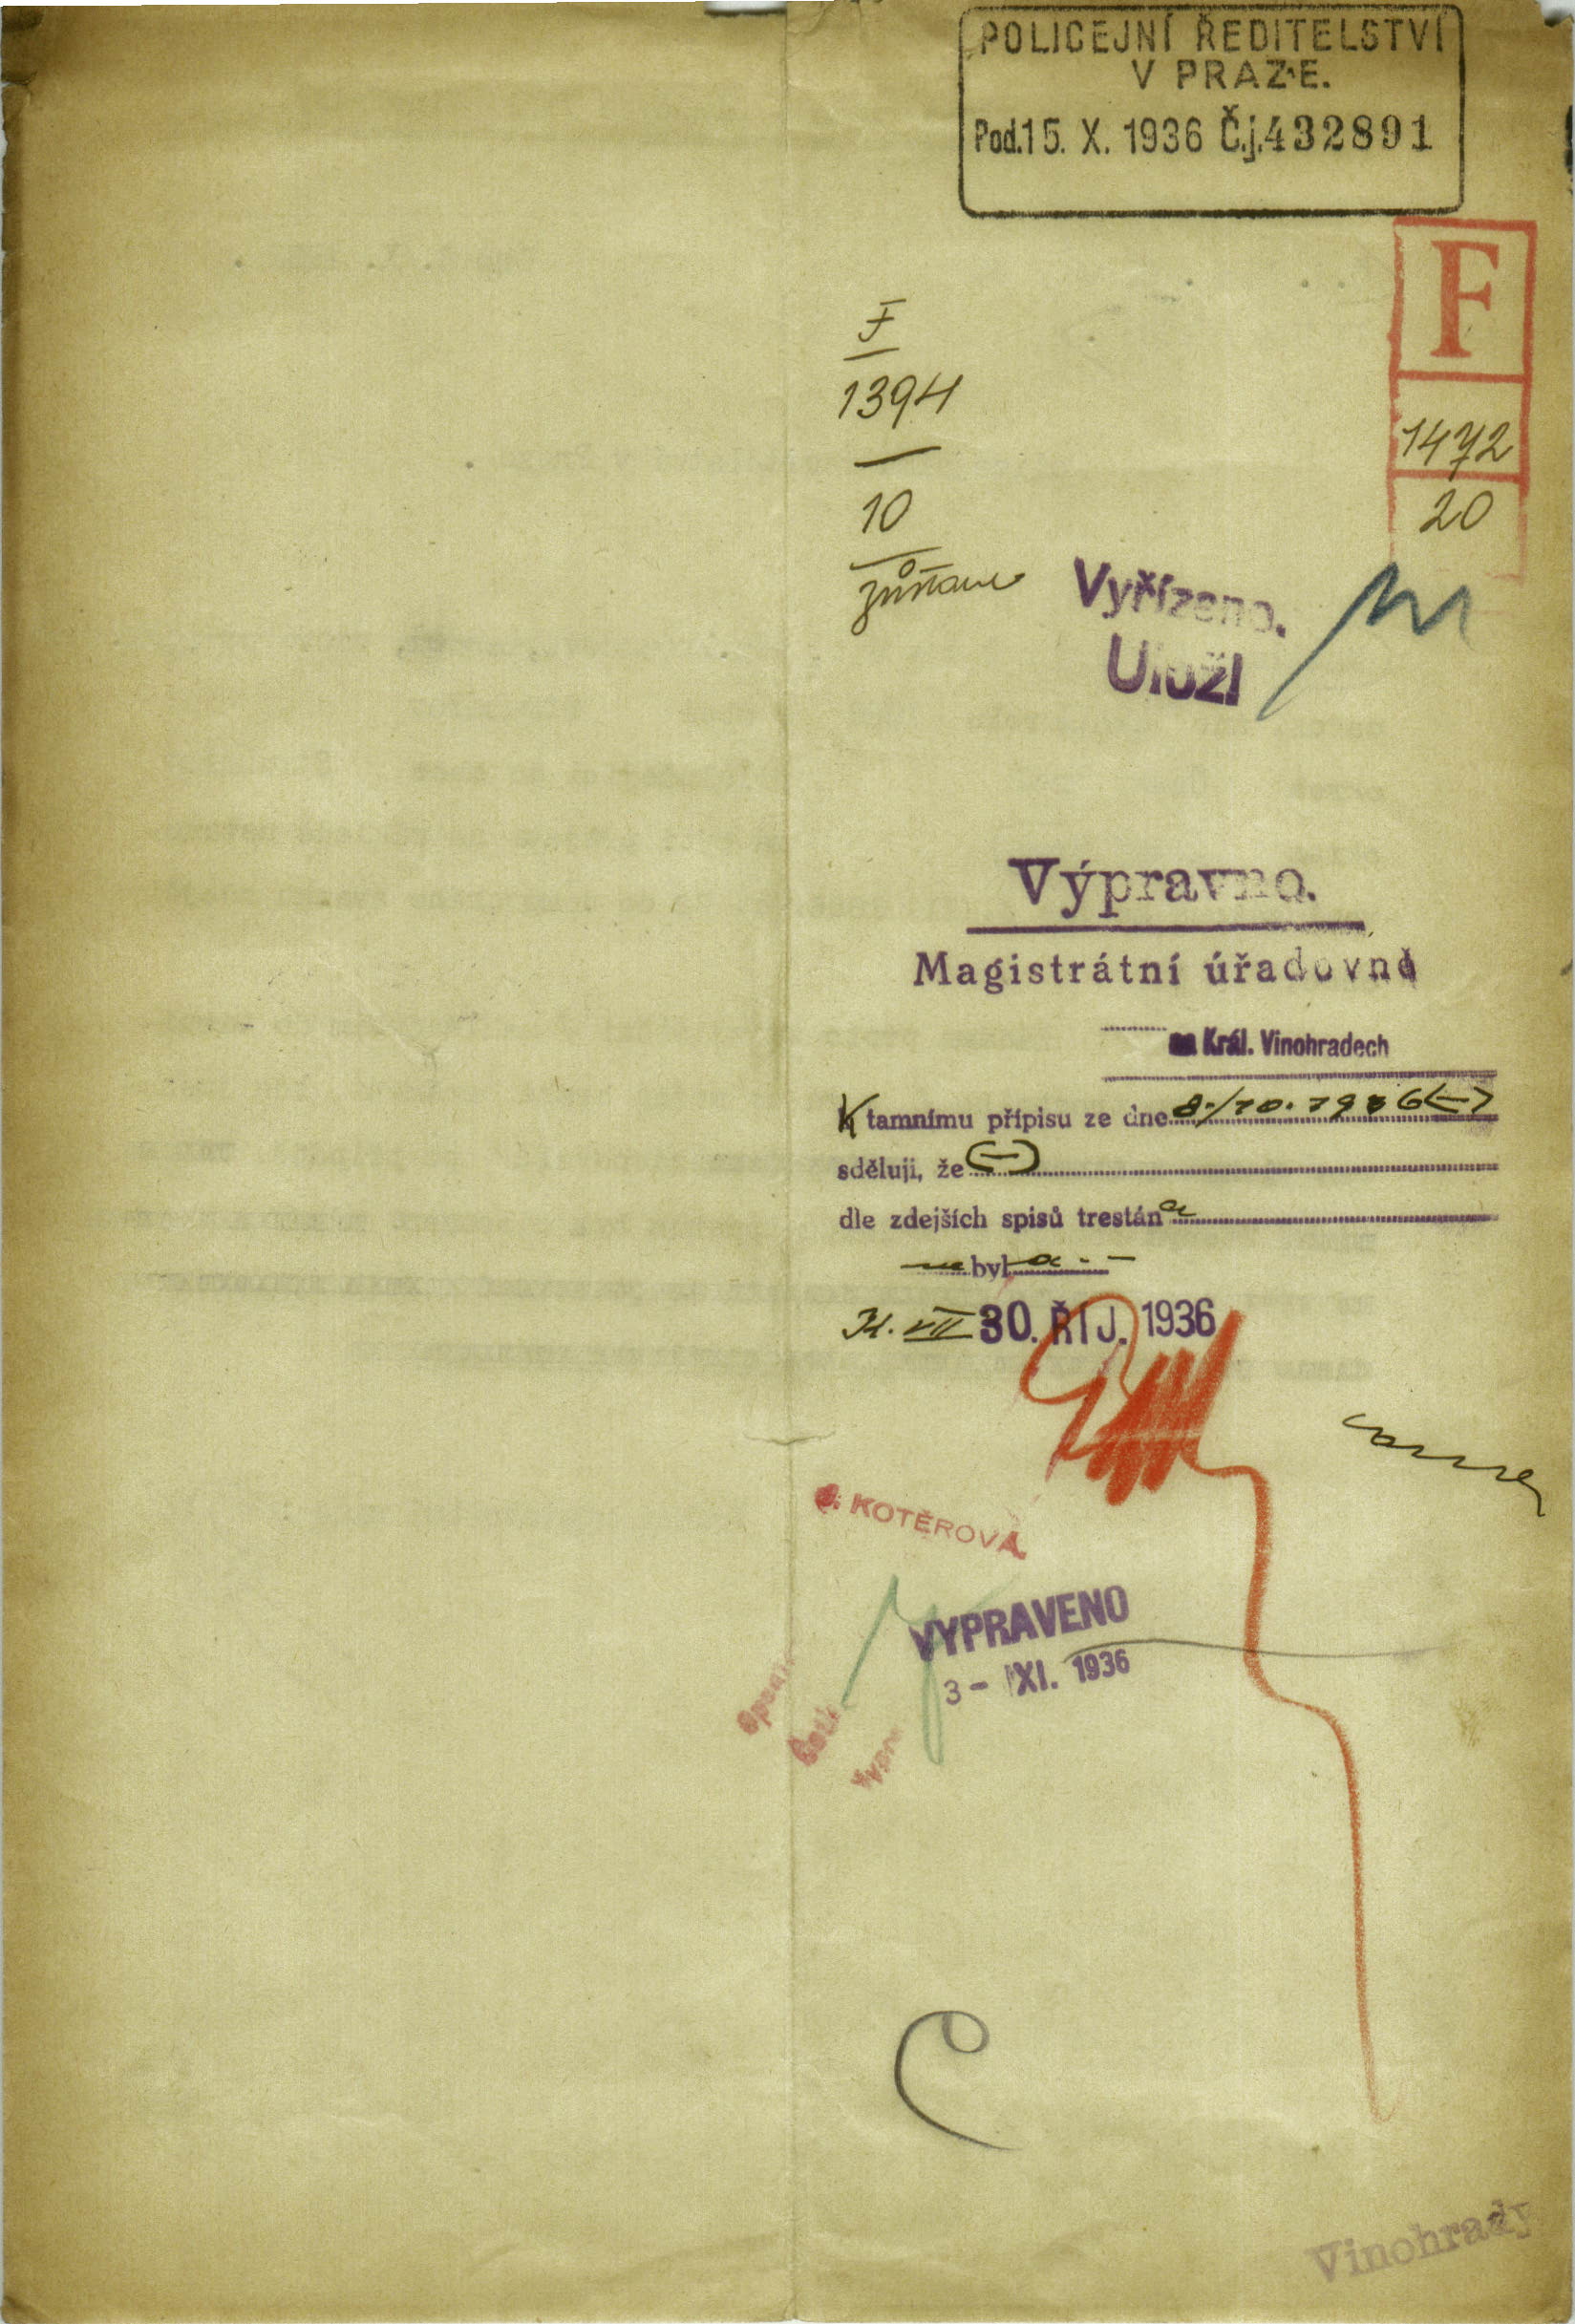 POLICEJNÍ ŘEDITELSTVÍ
V PRAZE.
Pod. 15. X. 1936 Č.j. 432891
F
1394
10
zůstane
F
1472
20
Vyřízeno.
UložI
Výpravno.
Magistrátní úřadovně
na Král. Vinohradech
K tamnímu přípisu ze dne 8./10. 1936 (-)
sděluji, že (-)
dle zdejších spisů trestána
nebyla. -
VII 30. ŘÍJ. 1936
KOTĚROVÁ
VYPRAVENO
3 - XI. 1936
Vinohrady